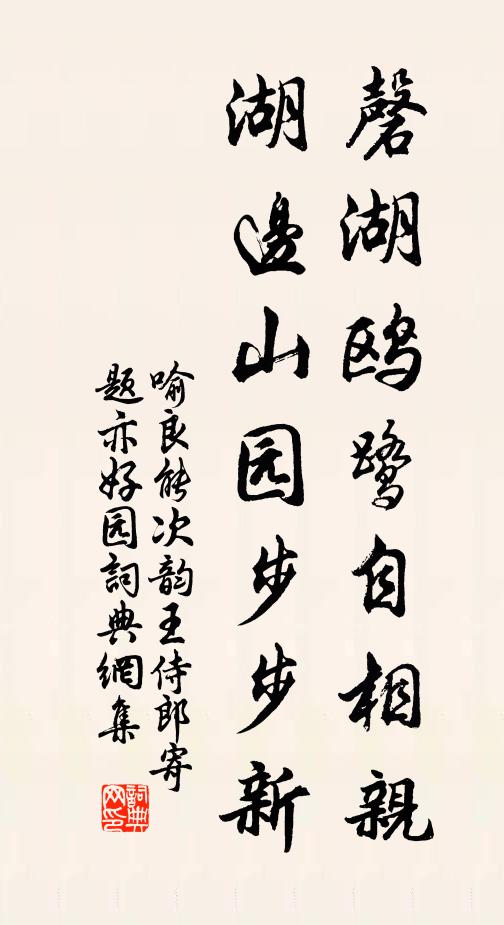 磬湖鸥鹭自相親
湖邊山园步步新
喻良能次韵王侍郎寄
题亦好园詞典網集
詞典网印